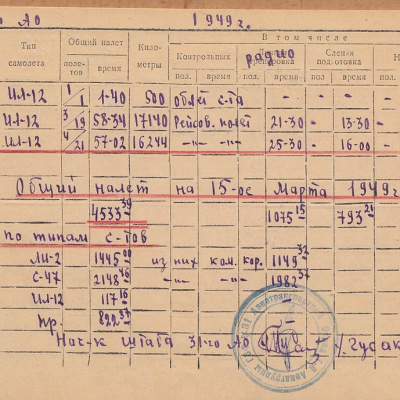 АО 1949г.
Тип самолета Общий налет Кило-метры В том числе
поле-тов время Контрольных радио Слепая подготовка
пол. время пол. время пол. время
Ил-12 1/1 1-40 500 облёт с-та
Ил-12 3/19 58-34 17140 Рейсов. полет 21-30 - 13-30 -
Ил-12 4/21 57-02 16244 -"- -"- 25-30 - 16-00 -
Общий налет на 15-ое Марта 1949г
4533 39 1075 15 793 21
по типам с-тов
Ли-2 1445 00 из них ком. кор. 1149 32
С-47 2148 46 -"- -"- 1982 37
Ил-12 117 16 -
пр. 822 37 -
Нач-к штаба 31-го АО Гусак